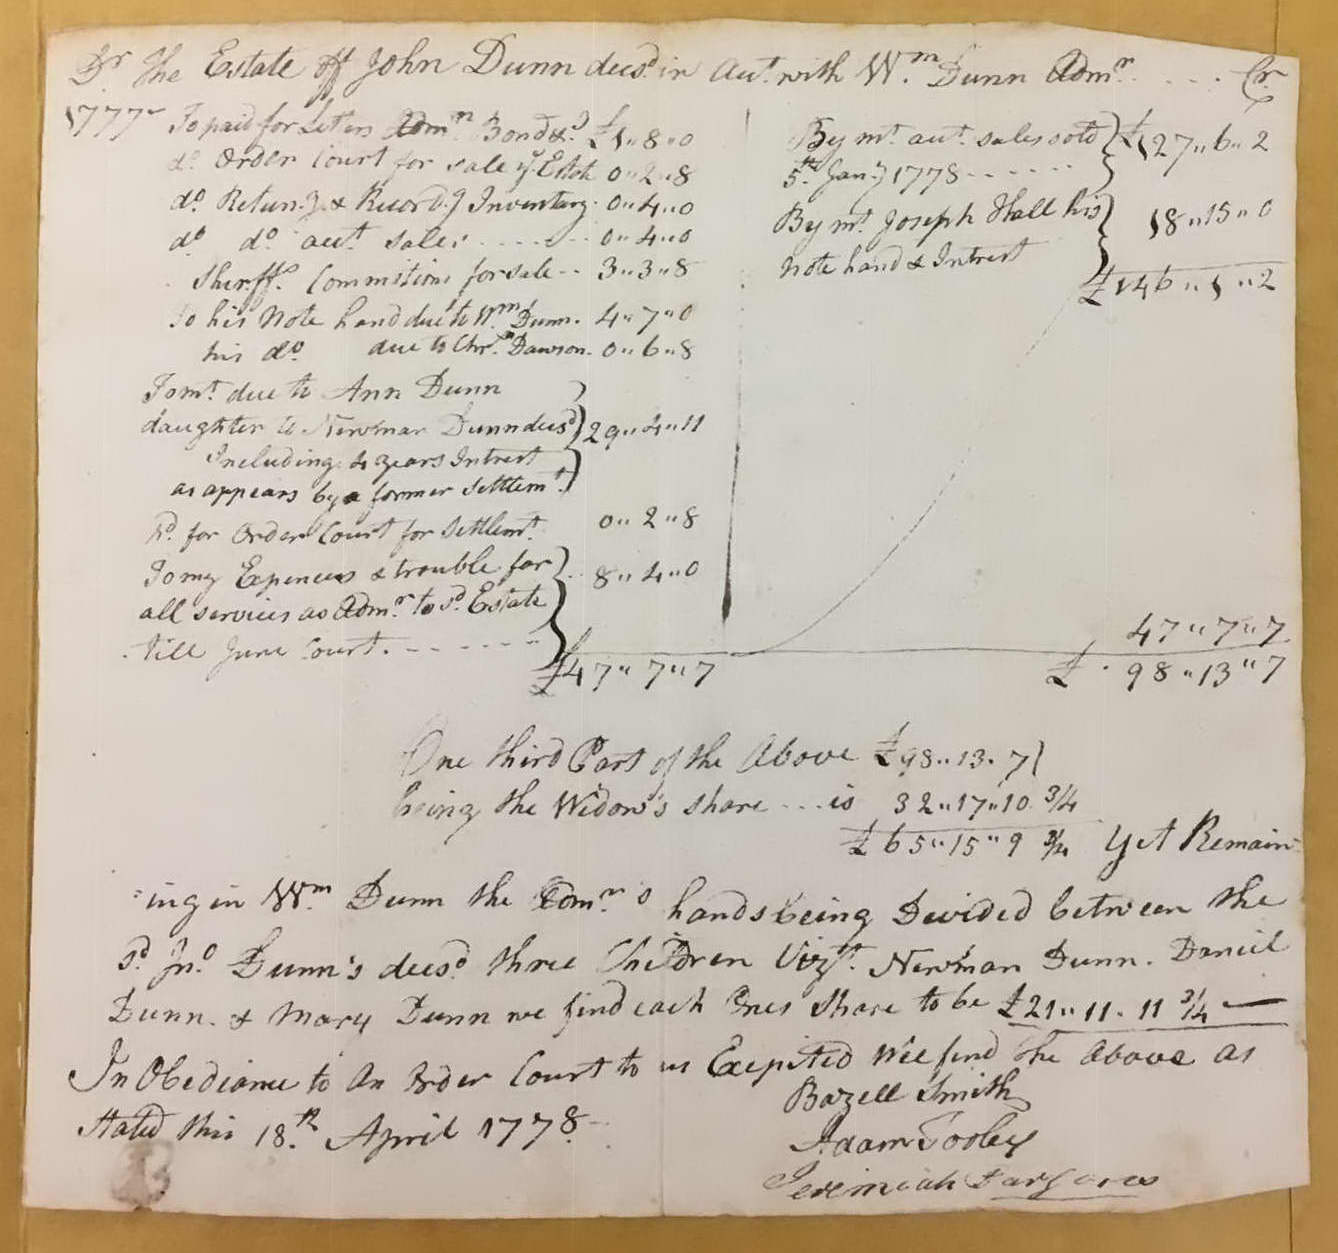 Dr. The Estate off John Dunn decsd. in Acut. with Wm. Dunn Admr. .... Cr.
1777 To paid for Leters Admn. Bond &c. £1"8"0
do. Order Court for sale of Estate 0"2"8
do. Return.g & Record.g Inventary. 0"4"0
do do. aut. sales ...... 0"4"0
Sheriffs. Commitions for sale .. 3"3"8
To his Note hand due to Wm. Dunn. 4"7"0
his do. due to Chr. Dawson. 0"6"8
To mt. due to Ann Dunn
daughter to Newman Dunn decsd 29"4"11
Including 4 years Intrest
as appears by a former Settlemt.
Pd. for Order Court for Settlemt. 0"2"8
To my Expences & trouble for
all services as Admr. to sd. Estate 8"4"0
till June Court. ------
£47"7"7
By mt. aut. sales sold £127"6"2
5th. Jany 1778 ------
By mt. Joseph Hall his 18"15"0
Note hand & Intrest
£146"1"2
47"7"7
£ 98"13"7
One third Part of the Above £98"13.7
being the Widow's share ... is 32"17"10 3/4
£65"15"9 3/4 Yet Remain-
=ing in Wm. Dunn the Admr.s hands being Devided between the
sd. Jno. Dunn's decsd three Children Vizt. Newman Dunn. Daniel
Dunn. & Mary Dunn we find each Ones Share to be £21"11.11 3/4
In Obediance to An Order Court to us We find the Above as
Stated this 18th. April 1778.
Bazell Smith
Adam Tooley
Jeremiah